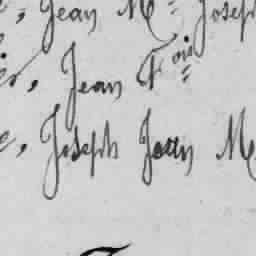 , Jean M. Joseph
, Jean F.ois
, Joseph Jean M